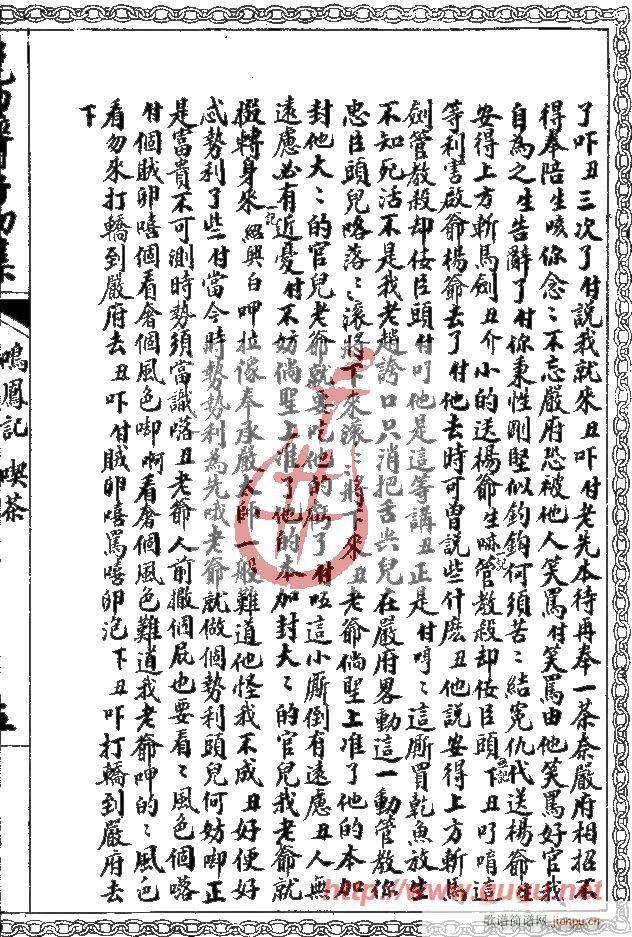 了吓丑三次了付説我就來丑吓付老先本待再奉一茶奈嚴府相招不
得奉陪生咳你念〻不忘嚴府恐被他人笑罵付笑罵由他笑罵好官我
自為之生告辭了付你秉性剛堅似鈎何須苦〻結冤仇代送楊爺生
安得上方斬馬劍丑介小的送楊爺生嘛管教殺却佞臣頭下丑叮唷這
等利害啟爺楊爺去了付他去時可曾説些什麽丑他説安得上方斬馬
劍管教殺却佞臣頭付叮他是這等講丑正是付哼〻這厮買乾魚放生
不知死活不是我老趙誇口只消把舌尖兒在嚴府畧動這一動管教你
忠臣頭兒咯落〻滾將下來滾〻將下來丑老爺倘聖上准了他的本加
封他大〻的官兒老爺就要吃他的虧了付呸這小厮倒有遠慮丑人無
遠慮必有近憂付不妨倘聖上准了他的本加封大〻的官兒我老爺就
掇轉身來一記紹興白呷拉像奉承嚴太師一般難道他怪我不成丑好便好
忒勢利了些付當今時勢勢利為先哦老爺就做個勢利頭兒何妨啣正
是富貴不可測時勢須當識咯丑老爺人前撒個屁也要看〻風色個咯
付個賊卵嘻個看奢個風色啣啊看奢個風色難道我老爺呷的〻風色
看勿來打轎到嚴府去丑吓付賊卵嘻罵嘻卵泡下丑吓打轎到嚴府去
下
鳴鳳記 喫茶
五
http://www.gupu.net
歌谱简谱网 jianpu.cn